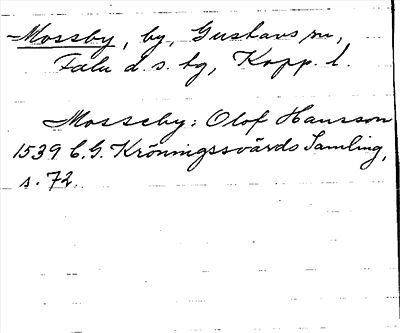 Mossby, by, Gustavs sn,
Falu d. s. tg, Kopp. l.
Mosseby: Olof Hansson
1539 C.G. Kröningssvärds Samling,
s. 72.